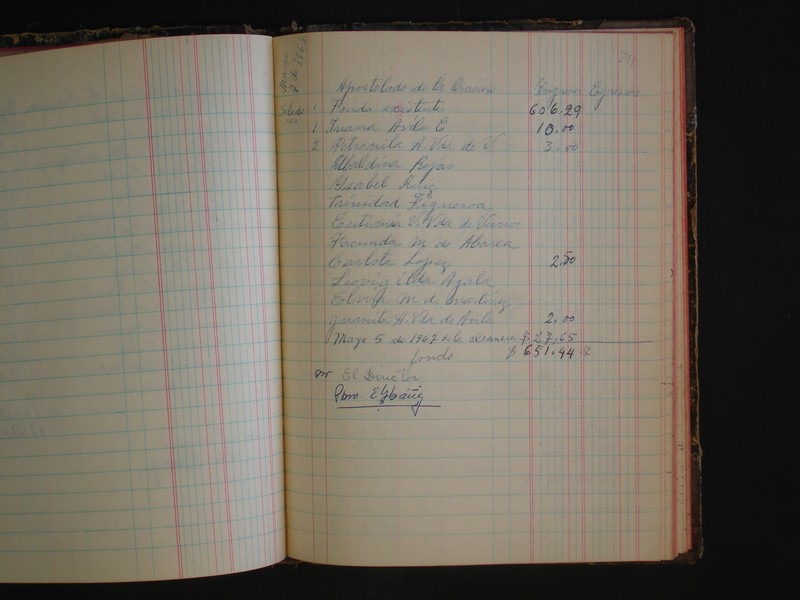 Mayo 7 de 1967
Apostolado de la Oracion Yngresos Egresos
Saldo 1 Fondo existente 606.29
1 Juana Avila E 10.00
2 Petronila A. Vda de V 3.00
Ubaldina Rojas
Ysabel Ruiz
Trinidad Figueroa
Eutimia V. Vda de
Facunda M de Abarca
Carlota Lopez 2.50
Leovigilda Ayala
Elvira M de Martinez
Juanita A. Vda de Avila 2.00
Mayo 5 de 1967 de la alcancia $ 27.65
fondo $ 651.44
El Director
Pbro.